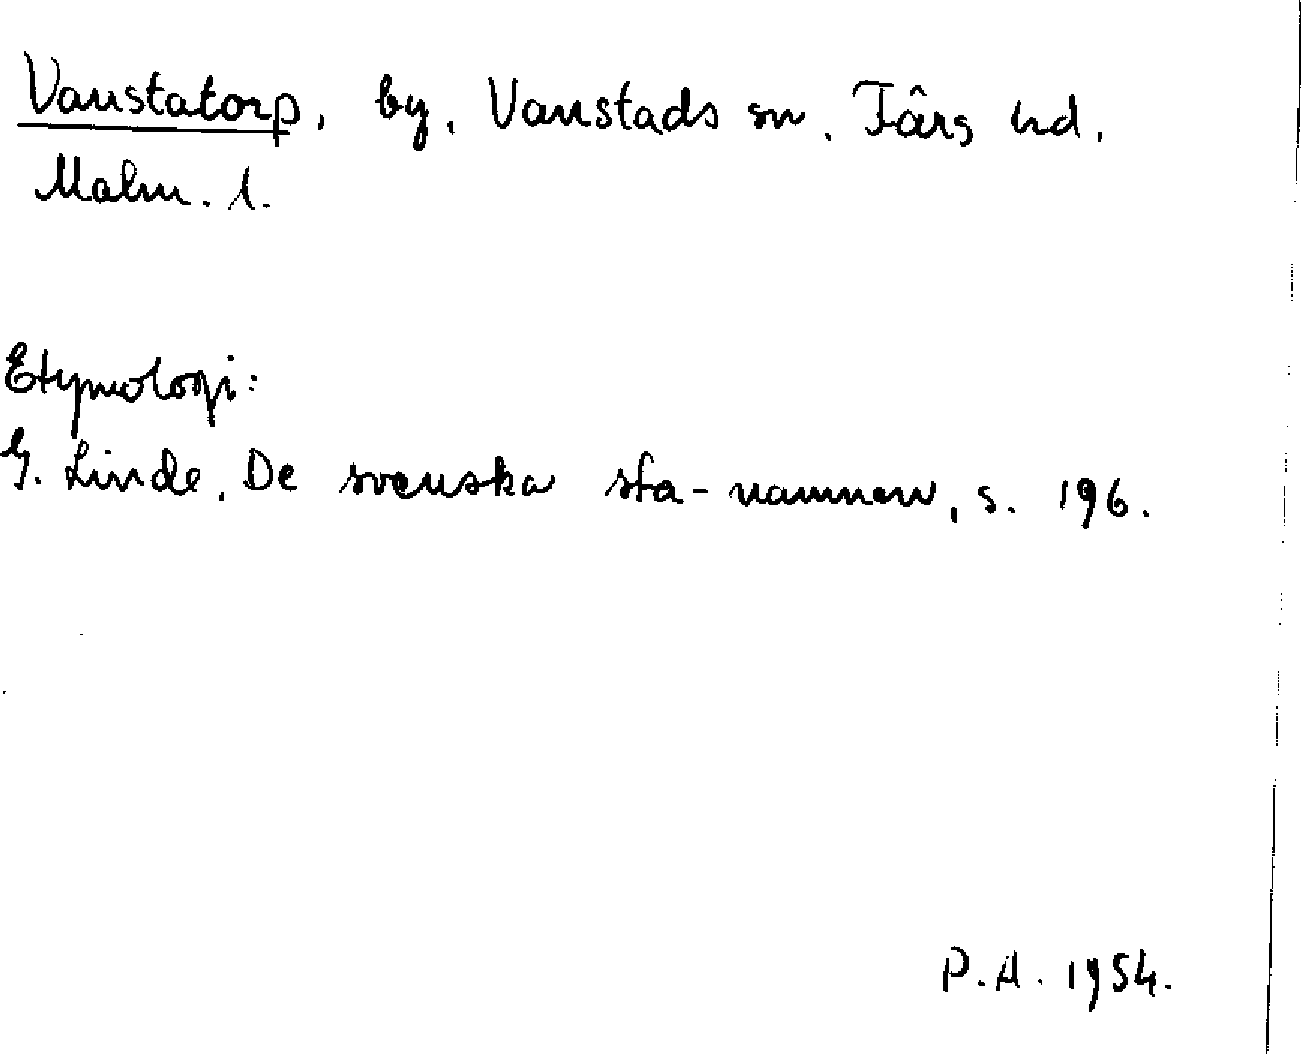 Vanstatorp, by, Vanstads sn, Färs hd,
Malm. l.
Etymologi:
G. Linde, De svenska sta-namnen, s. 196.
P.A. 1954.